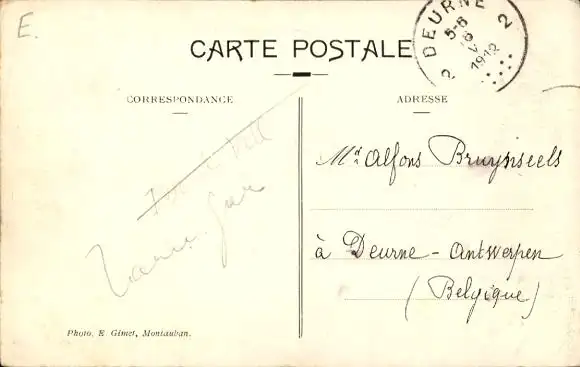 E.
DEURNE 2
5-6
V
1912
2
CARTE POSTALE
CORRESPONDANCE
ADRESSE
Mr Alfons Bruynseels
à Deurne - Antwerpen
(Belgique)
Photo. E. Gimet, Montauban.